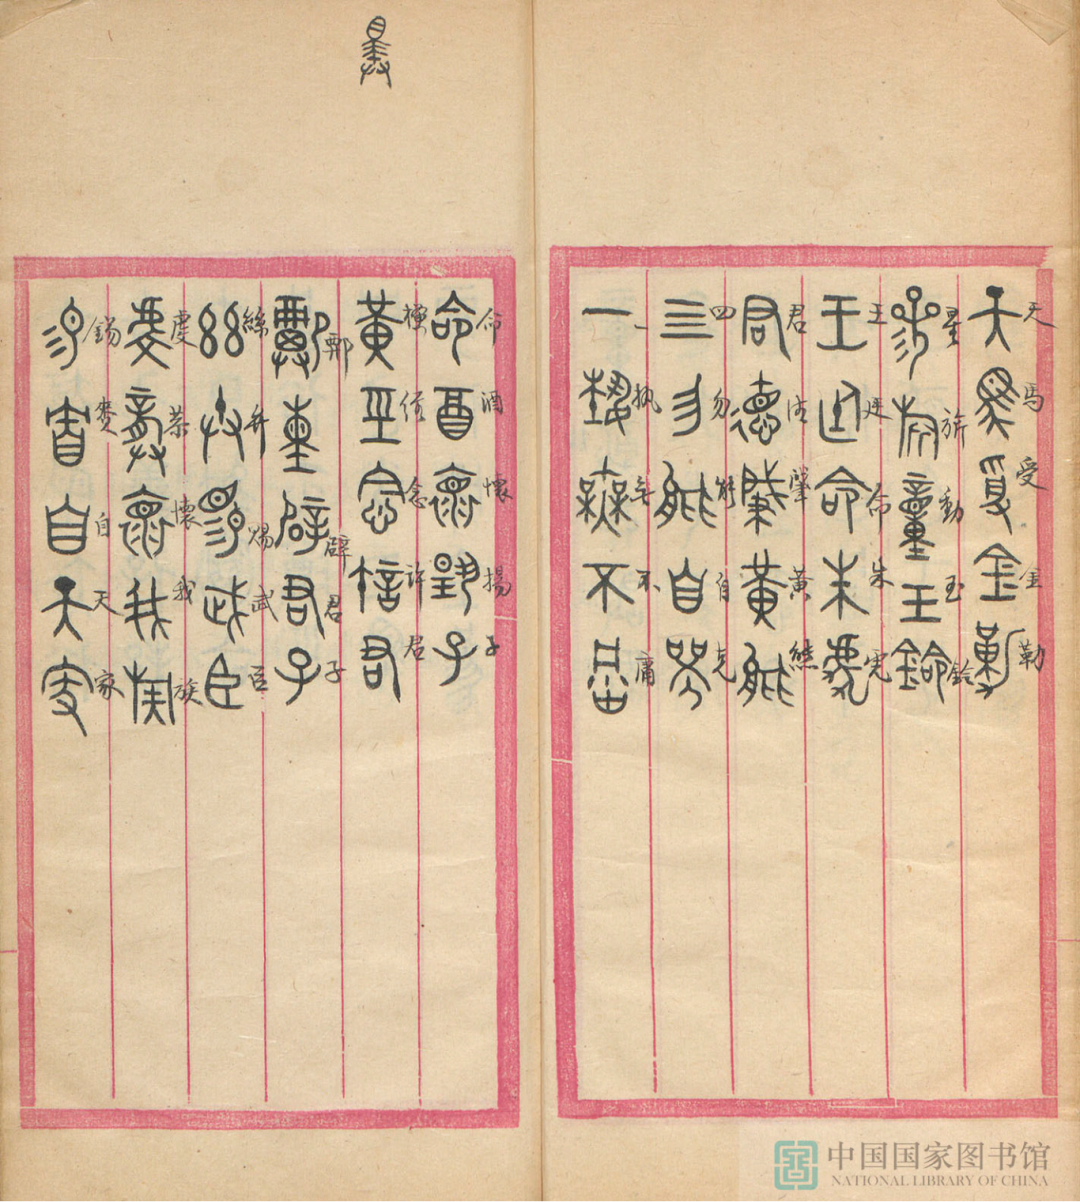 天馬受金勒
星旂動玉鈴
王廷命朱虎
君德肇黃熊
四方能自克
一執無不庸
命酒懷揚子
橫經念許君
鄭重辟君子
絲弁賜武臣
慶恭懷我族
錫賚自天家
中国国家图书馆
NATIONAL LIBRARY OF CHINA